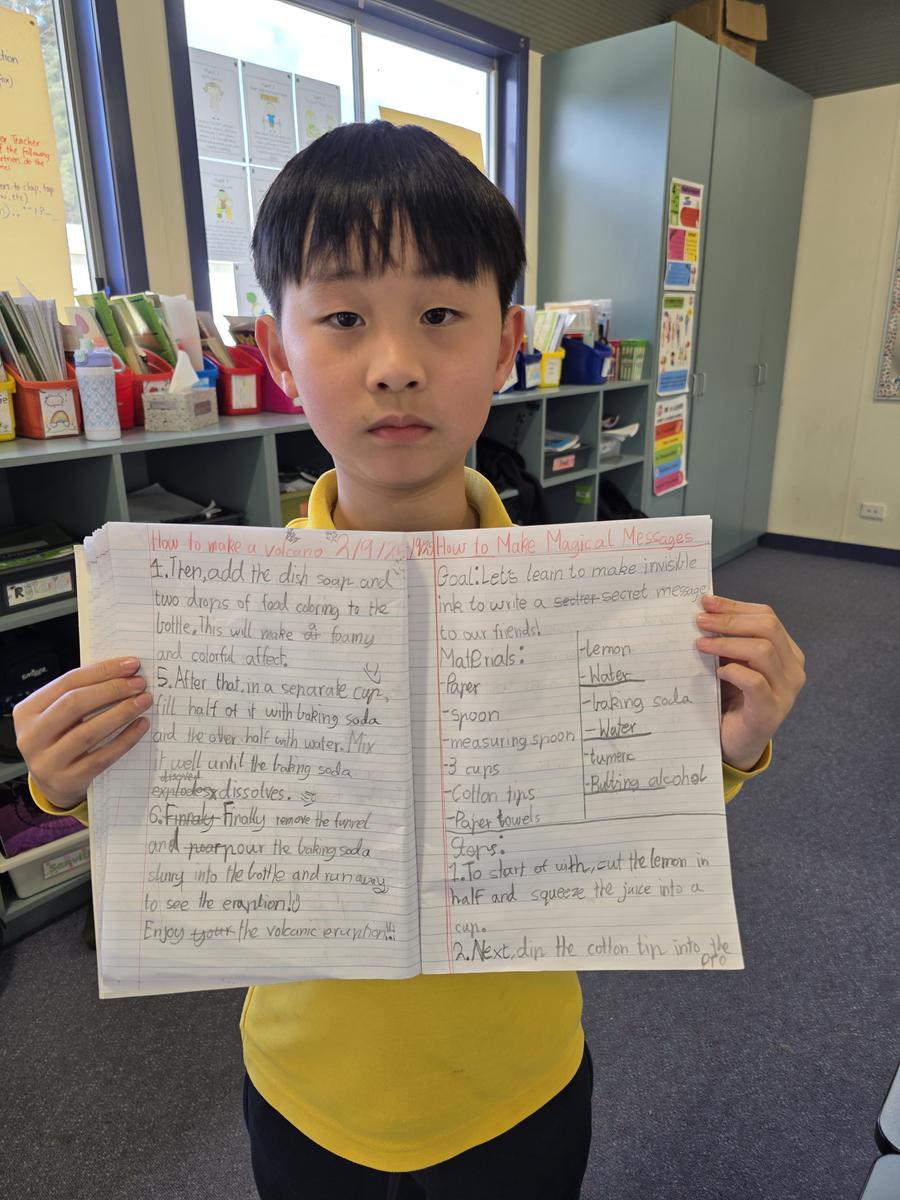 How to make a volcano 2/9/25
4.Then, add the dish soap and
two drops of food coloring to the
bottle. This will make a foamy
and colorful affect.
5. After that, in a separate cup,
fill half of it with baking soda
and the other half with water. Mix
it well until the baking soda
explodes dissolves.
6.Finnaly Finally remove the funnel
and poar pour the baking soda
slurry into the bottle and run away
to see the eraption!
Enjoy your the volcanic eruption!!!
How to Make Magical Messages
Goal: Let's learn to make invisible
ink to write a secret message
to our friends!
Materials:
-Paper
-spoon
-measuring spoon
-3 cups
-Cotton tips
-Paper towels
-lemon
-Water
-baking soda
-Water
-tumeric
-Bubbing alcohol
Steps:
1.To start of with, cut the lemon in
half and squeeze the juice into a
cup.
2.Next, dip the cotton tip into the
er Teacher
of the following